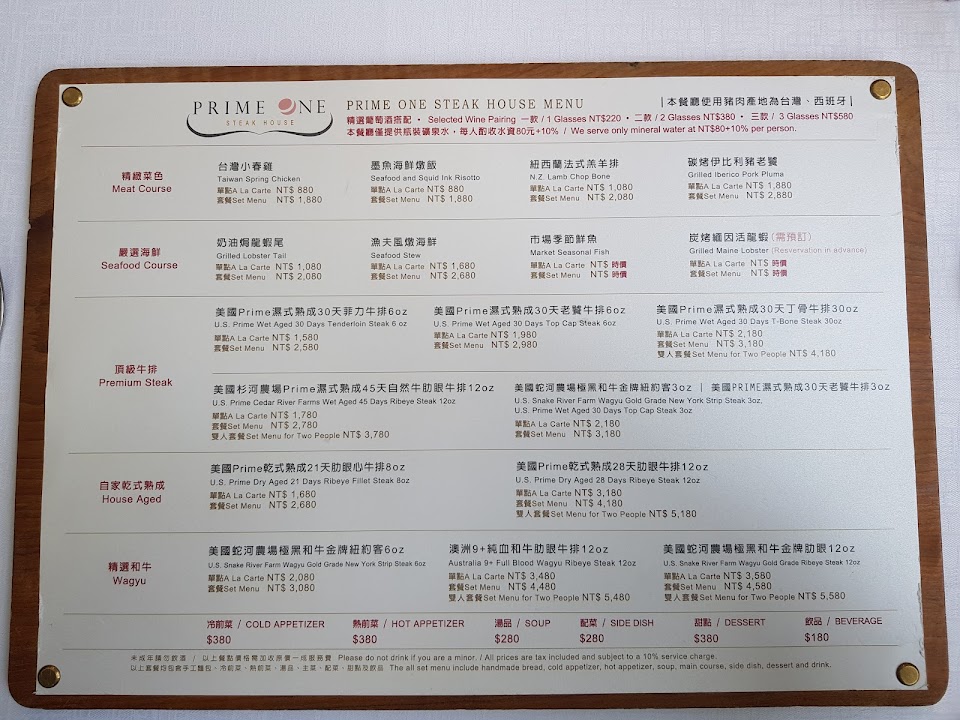 PRIME ONE
STEAK HOUSE
PRIME ONE STEAK HOUSE MENU
|本餐廳使用豬肉產地為台灣、西班牙|
精選葡萄酒搭配 • Selected Wine Pairing 一款 / 1 Glasses NT$220 • 二款 / 2 Glasses NT$380 • 三款 / 3 Glasses NT$580
本餐廳僅提供瓶裝礦泉水，每人酌收水資80元+10% / We serve only mineral water at NT$80+10% per person.
精緻菜色
Meat Course
台灣小春雞
Taiwan Spring Chicken
單點A La Carte NT$ 880
套餐Set Menu NT$ 1,880
墨魚海鮮燉飯
Seafood and Squid Ink Risotto
單點A La Carte NT$ 880
套餐Set Menu NT$ 1,880
紐西蘭法式羔羊排
N.Z. Lamb Chop Bone
單點A La Carte NT$ 1,080
套餐Set Menu NT$ 2,080
碳烤伊比利豬老饕
Grilled Iberico Pork Pluma
單點A La Carte NT$ 1,880
套餐Set Menu NT$ 2,880
嚴選海鮮
Seafood Course
奶油焗龍蝦尾
Grilled Lobster Tail
單點A La Carte NT$ 1,080
套餐Set Menu NT$ 2,080
漁夫風燉海鮮
Seafood Stew
單點A La Carte NT$ 1,680
套餐Set Menu NT$ 2,680
市場季節鮮魚
Market Seasonal Fish
單點A La Carte NT$ 時價
套餐Set Menu NT$ 時價
炭烤緬因活龍蝦(需預訂)
Grilled Maine Lobster (Resvervation in advance)
單點A La Carte NT$ 時價
套餐Set Menu NT$ 時價
頂級牛排
Premium Steak
美國Prime濕式熟成30天菲力牛排6oz
U.S. Prime Wet Aged 30 Days Tenderloin Steak 6 oz
單點A La Carte NT$ 1,580
套餐Set Menu NT$ 2,580
美國Prime濕式熟成30天老饕牛排6oz
U.S. Prime Wet Aged 30 Days Top Cap Steak 6oz
單點A La Carte NT$ 1,980
套餐Set Menu NT$ 2,980
美國Prime濕式熟成30天丁骨牛排30oz
U.S. Prime Wet Aged 30 Days T-Bone Steak 30oz
單點A La Carte NT$ 2,180
套餐Set Menu NT$ 3,180
雙人套餐Set Menu for Two People NT$ 4,180
美國杉河農場Prime濕式熟成45天自然牛肋眼牛排12oz
U.S. Prime Cedar River Farms Wet Aged 45 Days Ribeye Steak 12oz
單點A La Carte NT$ 1,780
套餐Set Menu NT$ 2,780
雙人套餐Set Menu for Two People NT$ 3,780
美國蛇河農場極黑和牛金牌紐約客3oz | 美國PRIME濕式熟成30天老饕牛排3oz
U.S. Snake River Farm Wagyu Gold Grade New York Strip Steak 3oz.
U.S. Prime Wet Aged 30 Days Top Cap Steak 3oz
單點A La Carte NT$ 2,180
套餐Set Menu NT$ 3,180
自家乾式熟成
House Aged
美國Prime乾式熟成21天肋眼心牛排8oz
U.S. Prime Dry Aged 21 Days Ribeye Fillet Steak 8oz
單點A La Carte NT$ 1,680
套餐Set Menu NT$ 2,680
美國Prime乾式熟成28天肋眼牛排12oz
U.S. Prime Dry Aged 28 Days Ribeye Steak 12oz
單點A La Carte NT$ 3,180
套餐Set Menu NT$ 4,180
雙人套餐Set Menu for Two People NT$ 5,180
精選和牛
Wagyu
美國蛇河農場極黑和牛金牌紐約客6oz
U.S. Snake River Farm Wagyu Gold Grade New York Strip Steak 6oz
單點A La Carte NT$ 2,080
套餐Set Menu NT$ 3,080
澳洲9+純血和牛肋眼牛排12oz
Australia 9+ Full Blood Wagyu Ribeye Steak 12oz
單點A La Carte NT$ 3,480
套餐Set Menu NT$ 4,480
雙人套餐Set Menu for Two People NT$ 5,480
美國蛇河農場極黑和牛金牌肋眼12oz
U.S. Snake River Farm Wagyu Gold Grade Ribeye Steak 12oz
單點A La Carte NT$ 3,580
套餐Set Menu NT$ 4,580
雙人套餐Set Menu for Two People NT$ 5,580
冷前菜 / COLD APPETIZER
$380
熱前菜 / HOT APPETIZER
$380
湯品 / SOUP
$280
配菜 / SIDE DISH
$280
甜點 / DESSERT
$380
飲品 / BEVERAGE
$180
未成年請勿飲酒 / 以上餐點價格需加收原價一成服務費 Please do not drink if you are a minor. / All prices are tax included and subject to a 10% service charge.
以上套餐均包含手工麵包、冷前菜、熱前菜、湯品、主菜、配菜、甜點及飲品 The all set menu include handmade bread, cold appetizer, hot appetizer, soup, main course, side dish, dessert and drink.